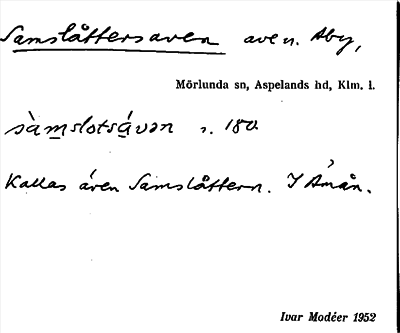 Samslåttersaven ave n. Åby,
Mörlunda sn, Aspelands hd, Klm. l.
sàmslotsávən s. 180
Kallas även Samslåttern. I Åmån.
Ivar Modéer 1952